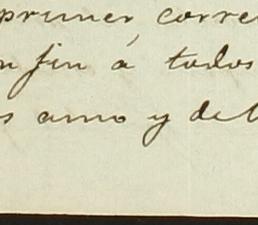 primer corre
n fin á todos
s amo y de